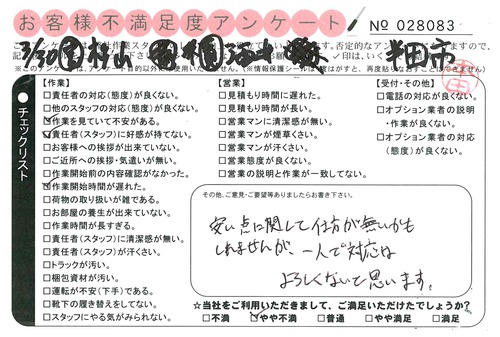 お客様不満足度アンケート
№ 028083
半田市
チェックリスト
【作業】
□責任者の対応(態度)が良くない。
□他のスタッフの対応(態度)が良くない。
☑作業を見ていて不安がある。
☑責任者(スタッフ)に好感が持てない。
□お客様への挨拶が出来ていない。
□ご近所への挨拶・気遣いが無い。
□作業開始前の内容確認がなかった。
☑作業開始時間が遅れた。
□荷物の取り扱いが雑である。
□お部屋の養生が出来ていない。
□作業時間が長すぎる。
□責任者(スタッフ)に清潔感が無い。
□責任者(スタッフ)が汗くさい。
□トラックが汚い。
□梱包資材が汚い。
□運転が不安(下手)である。
□靴下の履き替えをしてない。
□スタッフにやる気がみられない。
【営業】
□見積もり時間に遅れた。
□見積もり時間が長い。
□営業マンに清潔感が無い。
□営業マンが煙草くさい。
□営業マンが汗くさい。
□営業態度が良くない。
□営業の説明と作業が一致してない。
【受付・その他】
□電話の対応が良くない。
□オプション業者の説明・作業が良くない。
□オプション業者の対応(態度)が良くない。
その他、ご意見・ご要望等ありましたらお書き下さい。
安い点に関して仕方が無いかも
しれませんが、一人で対応は
よろしくないと思います。
☆当社をご利用いただきまして、ご満足いただけたでしょうか?
□不満 ☑やや不満 □普通 □やや満足 □満足